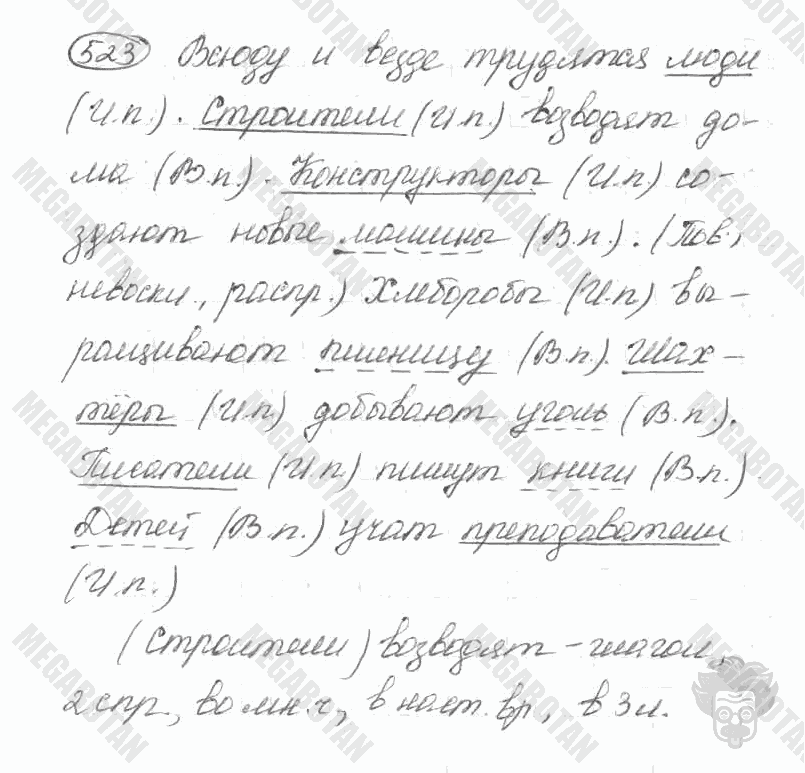 523 Всюду и везде трудятся люди
(И.п.). Строители (И.п) возводят до-
ма (В.п). Конструкторы (И.п) со-
здают новые машины (В.п.). (Пов.,
невоскл., распр.) Хлеборобы (И.п) вы-
ращивают пшеницу (В.п.). Шах-
тёры (И.п) добывают уголь (В.п.).
Писатели (И.п.) пишут книги (В.п.)
Детей (В.п.) учат преподаватели
(И.п.)
(Строители) возводят - глагол,
2 спр., во мн.ч, в наст. вр, в 3 л.
MEGABOTAN